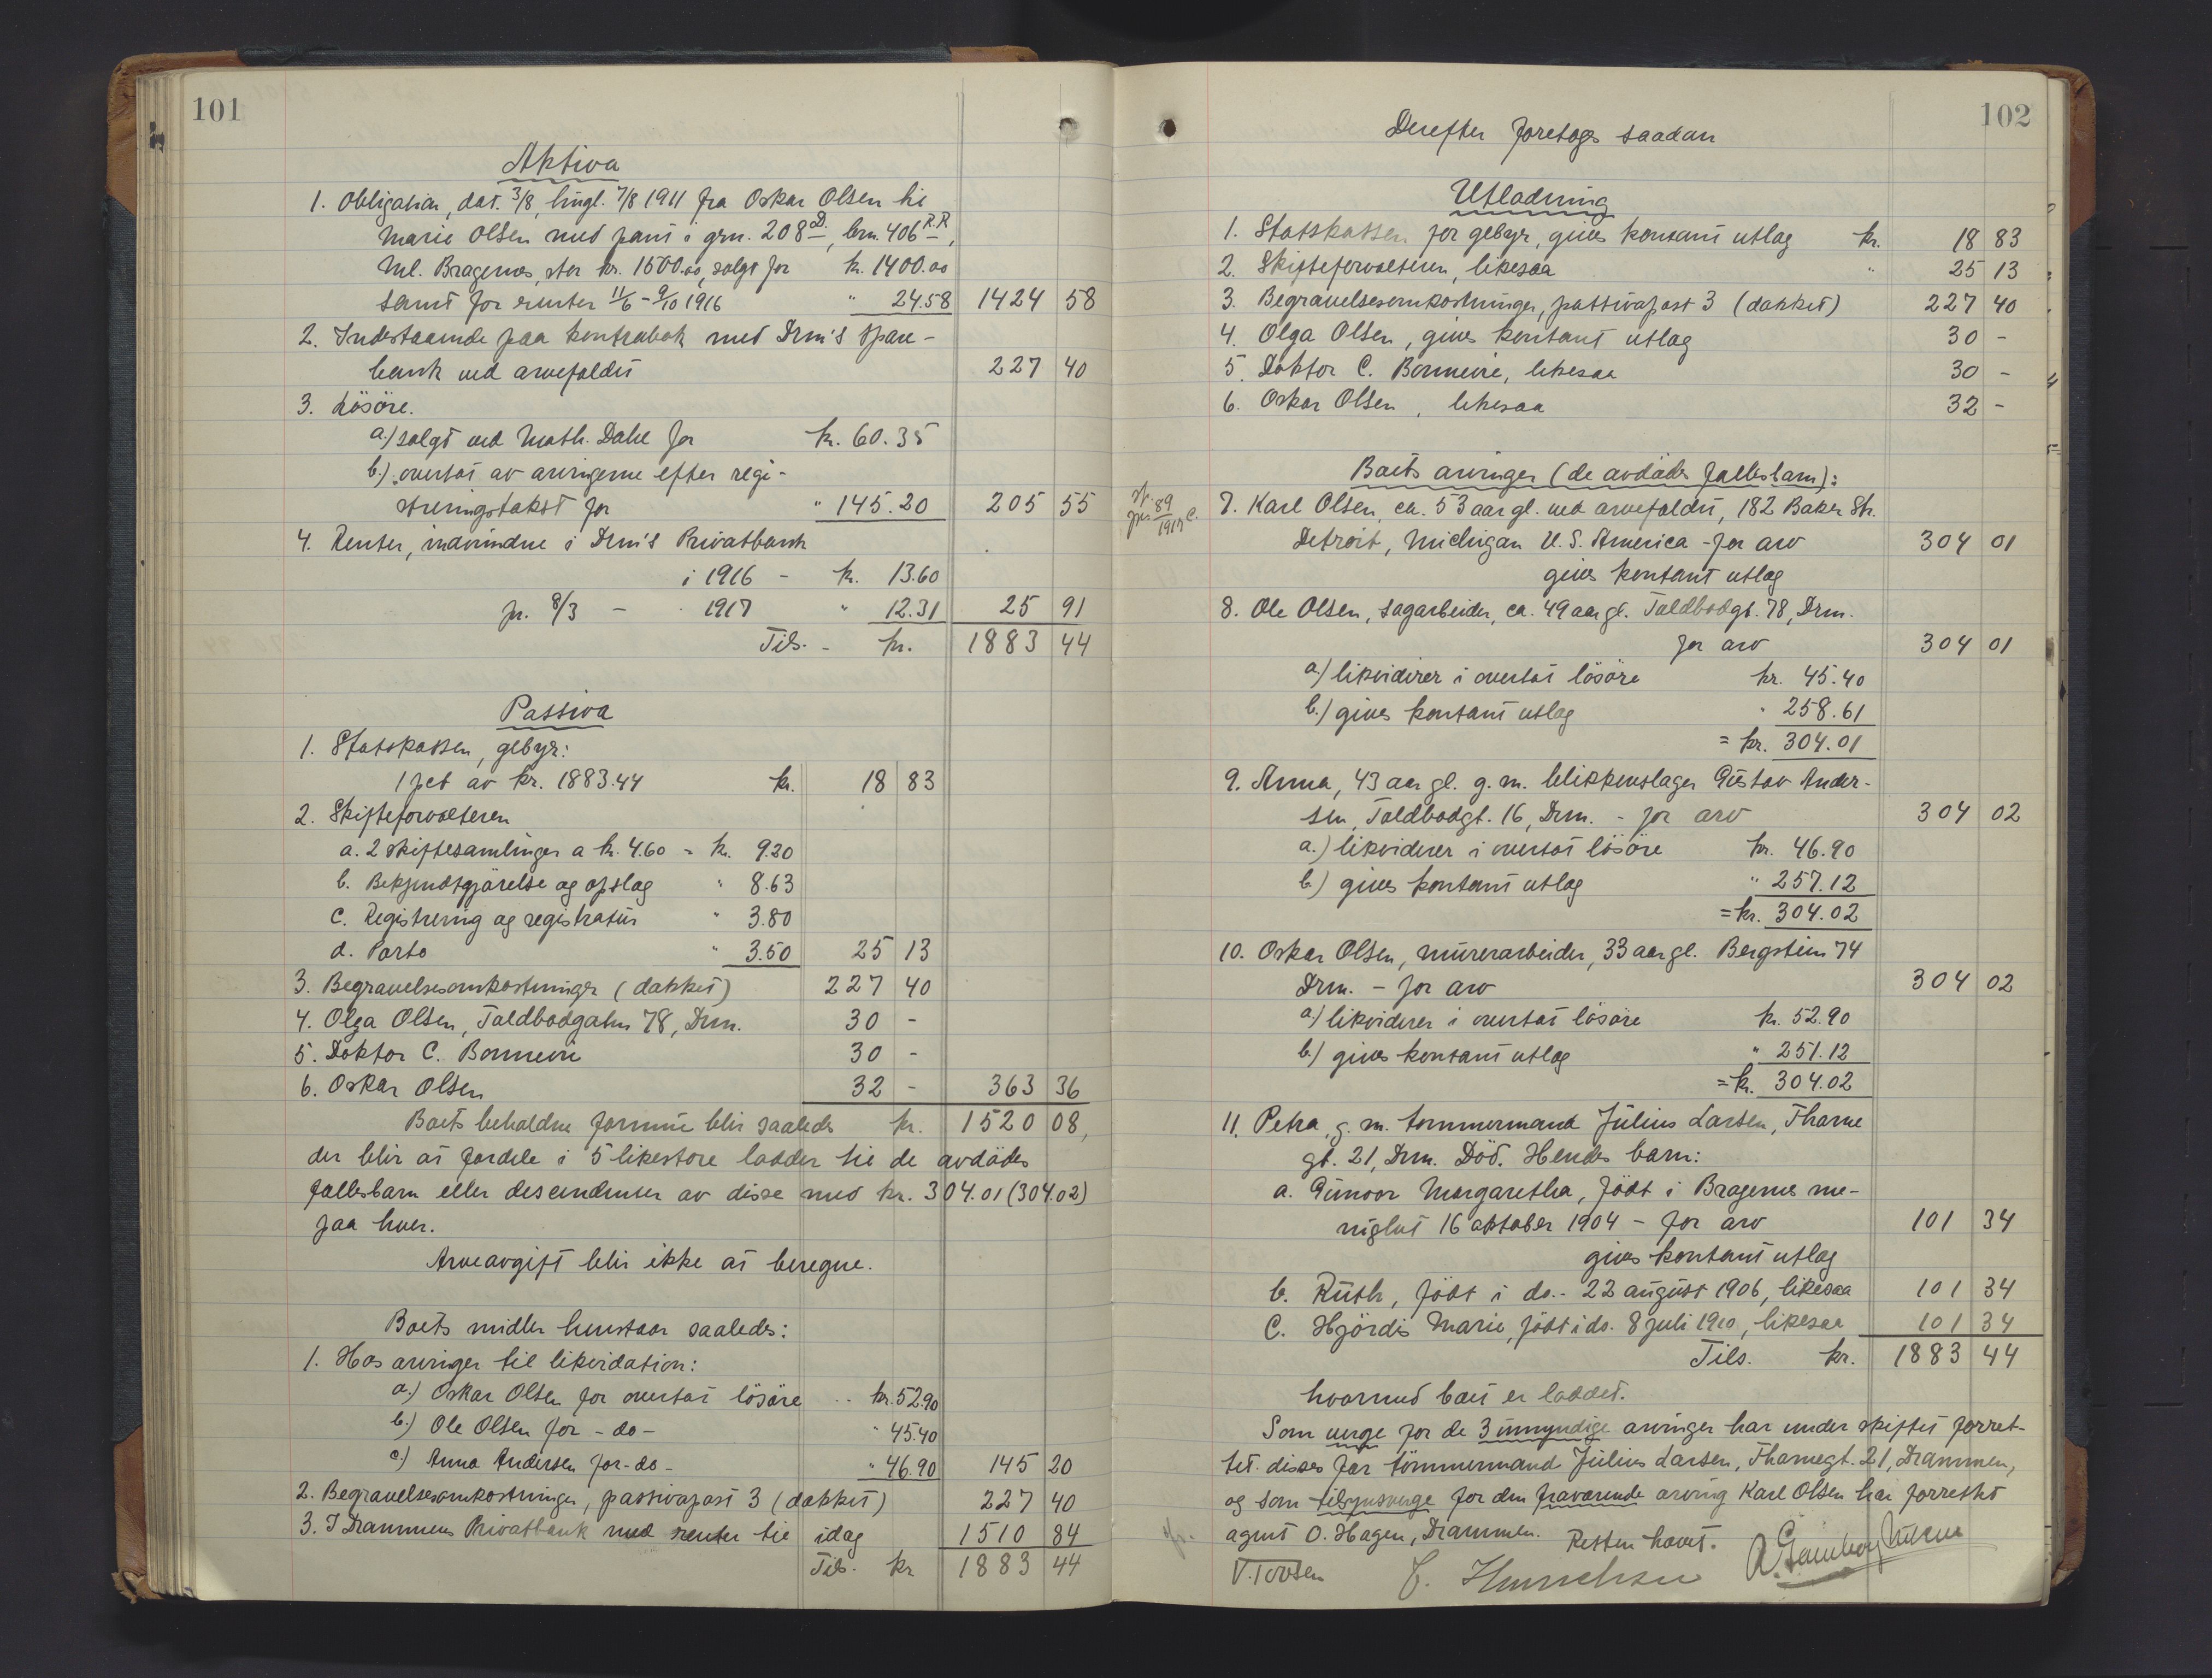 101
Aktiva
1. Obligation, dat. 3/8, tingl. 7/8 1911 fra Oskar Olsen til
Marie Olsen med pant i grn. 208 D., brn. 406 R.R,
ml. Bragernes, stor kr. 1500.00, solgt for kr. 1400.00
samt for renter 11/6 - 9/10 1916 " 24.58 1424 58
2. Indestaaende paa kontrabok med Drm's Spare-
bank ved arvefaldet 227 40
3. Lösöre.
a.) solgt ved Math. Dahl for kr. 60.35
b.) overtat av arvingerne efter regi-
streringstakst for " 145.20 205 55
4. Renter, indvundne i Drm's Privatbank
i 1916 - kr. 13.60
pr. 8/3 - 1917 " 12.31 25 91
Tils. - kr. 1883 44
Passiva
1. Statskassen, gebyr:
1 pct av kr. 1883.44 kr. 18 83
2. Skifteforvalteren
a. 2 skiftesamlinger a kr. 4.60 = kr. 9.20
b. Bekjendtgjörelse og opslag " 8.63
c. Registrering og registratur " 3.80
d. Porto " 3.50 25 13
3. Begravelsesomkostninger (dækket) 227 40
4. Olga Olsen, Toldbodgaten 78, Drm. 30 -
5. Doktor C. Bonnevie 30 -
6. Oskar Olsen 32 - 363 36
Boets beholdne formue blir saaledes kr. 1520 08,
der blir at fordele i 5 likestore lodder til de avdödes
fællesbarn eller descendenter av disse med kr. 304.01 (304.02)
paa hver.
Arveavgift blir ikke at beregne.
Boets midler henstaar saaledes:
1. Hos arvinger til likvidation:
a.) Oskar Olsen for overtat lösöre .. kr. 52.90
b.) Ole Olsen for - do - " 45.40
c.) Anna Andersen for - do - " 46.90 145 20
2. Begravelsesomkostninger, passivapost 3 (dækket) 227 40
3. I Drammens Privatbank med renter til idag 1510 84
Tils. kr 1883 44
102
Derefter foretoges saadan
Utlodning
1. Statskassen for gebyr, gives kontant utlæg kr. 18 83
2. Skifteforvalteren, likesaa " 25 13
3. Begravelsesomkostninger, passivapost 3 (dækket) 227 40
4. Olga Olsen, gives kontant utlæg 30 -
5. Doktor C. Bonnevie, likesaa 30 -
6. Oskar Olsen, likesaa 32 -
Boets arvinger (de avdödes fællesbarn):
89
1917 C.
7. Karl Olsen, ca. 53 aar gl. ved arvefaldet, 182 Baker Str.
Detroit, Michigan U.S. America - for arv 304 01
gives kontant utlæg
8. Ole Olsen, sagarbeider, ca. 49 aar gl. Toldbodgt. 78, Drm.
for arv 304 01
a.) likviderer i overtat lösöre kr. 45.40
b.) gives kontant utlæg " 258.61
= kr. 304.01
9. Anna, 43 aar gl. g. m. blikkenslager Gustav Ander-
sen, Toldbodgt. 16, Drm. - for arv 304 02
a.) likviderer i overtat lösöre kr. 46.90
b.) gives kontant utlæg " 257.12
= kr. 304.02
10. Oskar Olsen, murerarbeider, 33 aar gl. Bergstien 74
Drm. - for arv 304 02
a.) likviderer i overtat lösöre kr. 52.90
b.) gives kontant utlæg " 251.12
= kr. 304.02
11. Petra, g. m. tömmermand Julius Larsen, Thorne
gt. 21, Drm. Död. Hendes barn:
a. Gunvor Margaretha, födt i Bragernes me-
nighet 16 oktober 1904 - for arv 101 34
gives kontant utlæg
b. Ruth, födt i do. - 22 august 1906, likesaa 101 34
C. Hjördis Marie, födt i do. 8 juli 1910, likesaa 101 34
Tils. kr. 1883 44
hvormed boet er loddet.
Som verge for de 3 umyndige arvinger har under skiftet forret-
tet disses far tömmermand Julius Larsen, Thornegt. 21, Drammen,
og som tilsynsverge for den fraværende arving Karl Olsen har forrettet
agent O. Hagen, Drammen. Retten hævet.